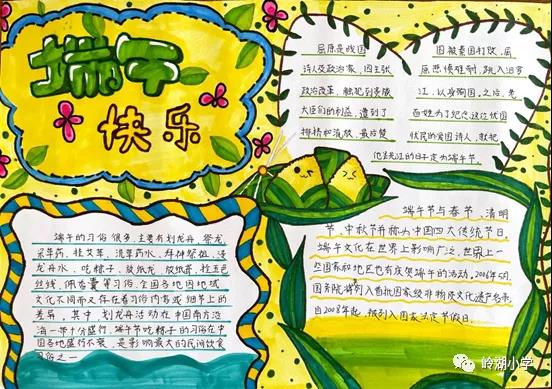 端午
快乐
屈原是战国
诗人及政治家，因主张
政治改革，触犯到贵族
大臣们的利益，遭到了
排挤和流放，最后楚
国被秦国打败，屈
原悲愤难耐，跳入汨罗
江，以身殉国，之后，老
百姓为了纪念这位忧国
忧民的爱国诗人，就把
他去投江的日子定为端节
端午的习俗很多，主要有划龙舟、祭龙、
采草药、挂艾草、洗草药水、拜神祭祖、浸
龙舟水、吃粽子、放纸龙、放纸鸢、拴五色
丝线、佩香囊等习俗，全国各地因地域
文化不同而又存在着习俗内容或细节上的
差异。其中，划龙舟活动在中国南方沿
海一带十分盛行，端午节吃粽子的习俗在中
国各地盛行不衰，是影响最大的民间饮食
习俗之一
端午节与春节、清明
节、中秋节并称为中国四大传统节日。
端午文化在世界上影响广泛，世界上一
些国家和地区也有庆贺端午的活动。2006年5月，
国务院将列入首批国家级非物质文化遗产名录，
自2008年起，被列入国家法定节假日。
岭湖小学